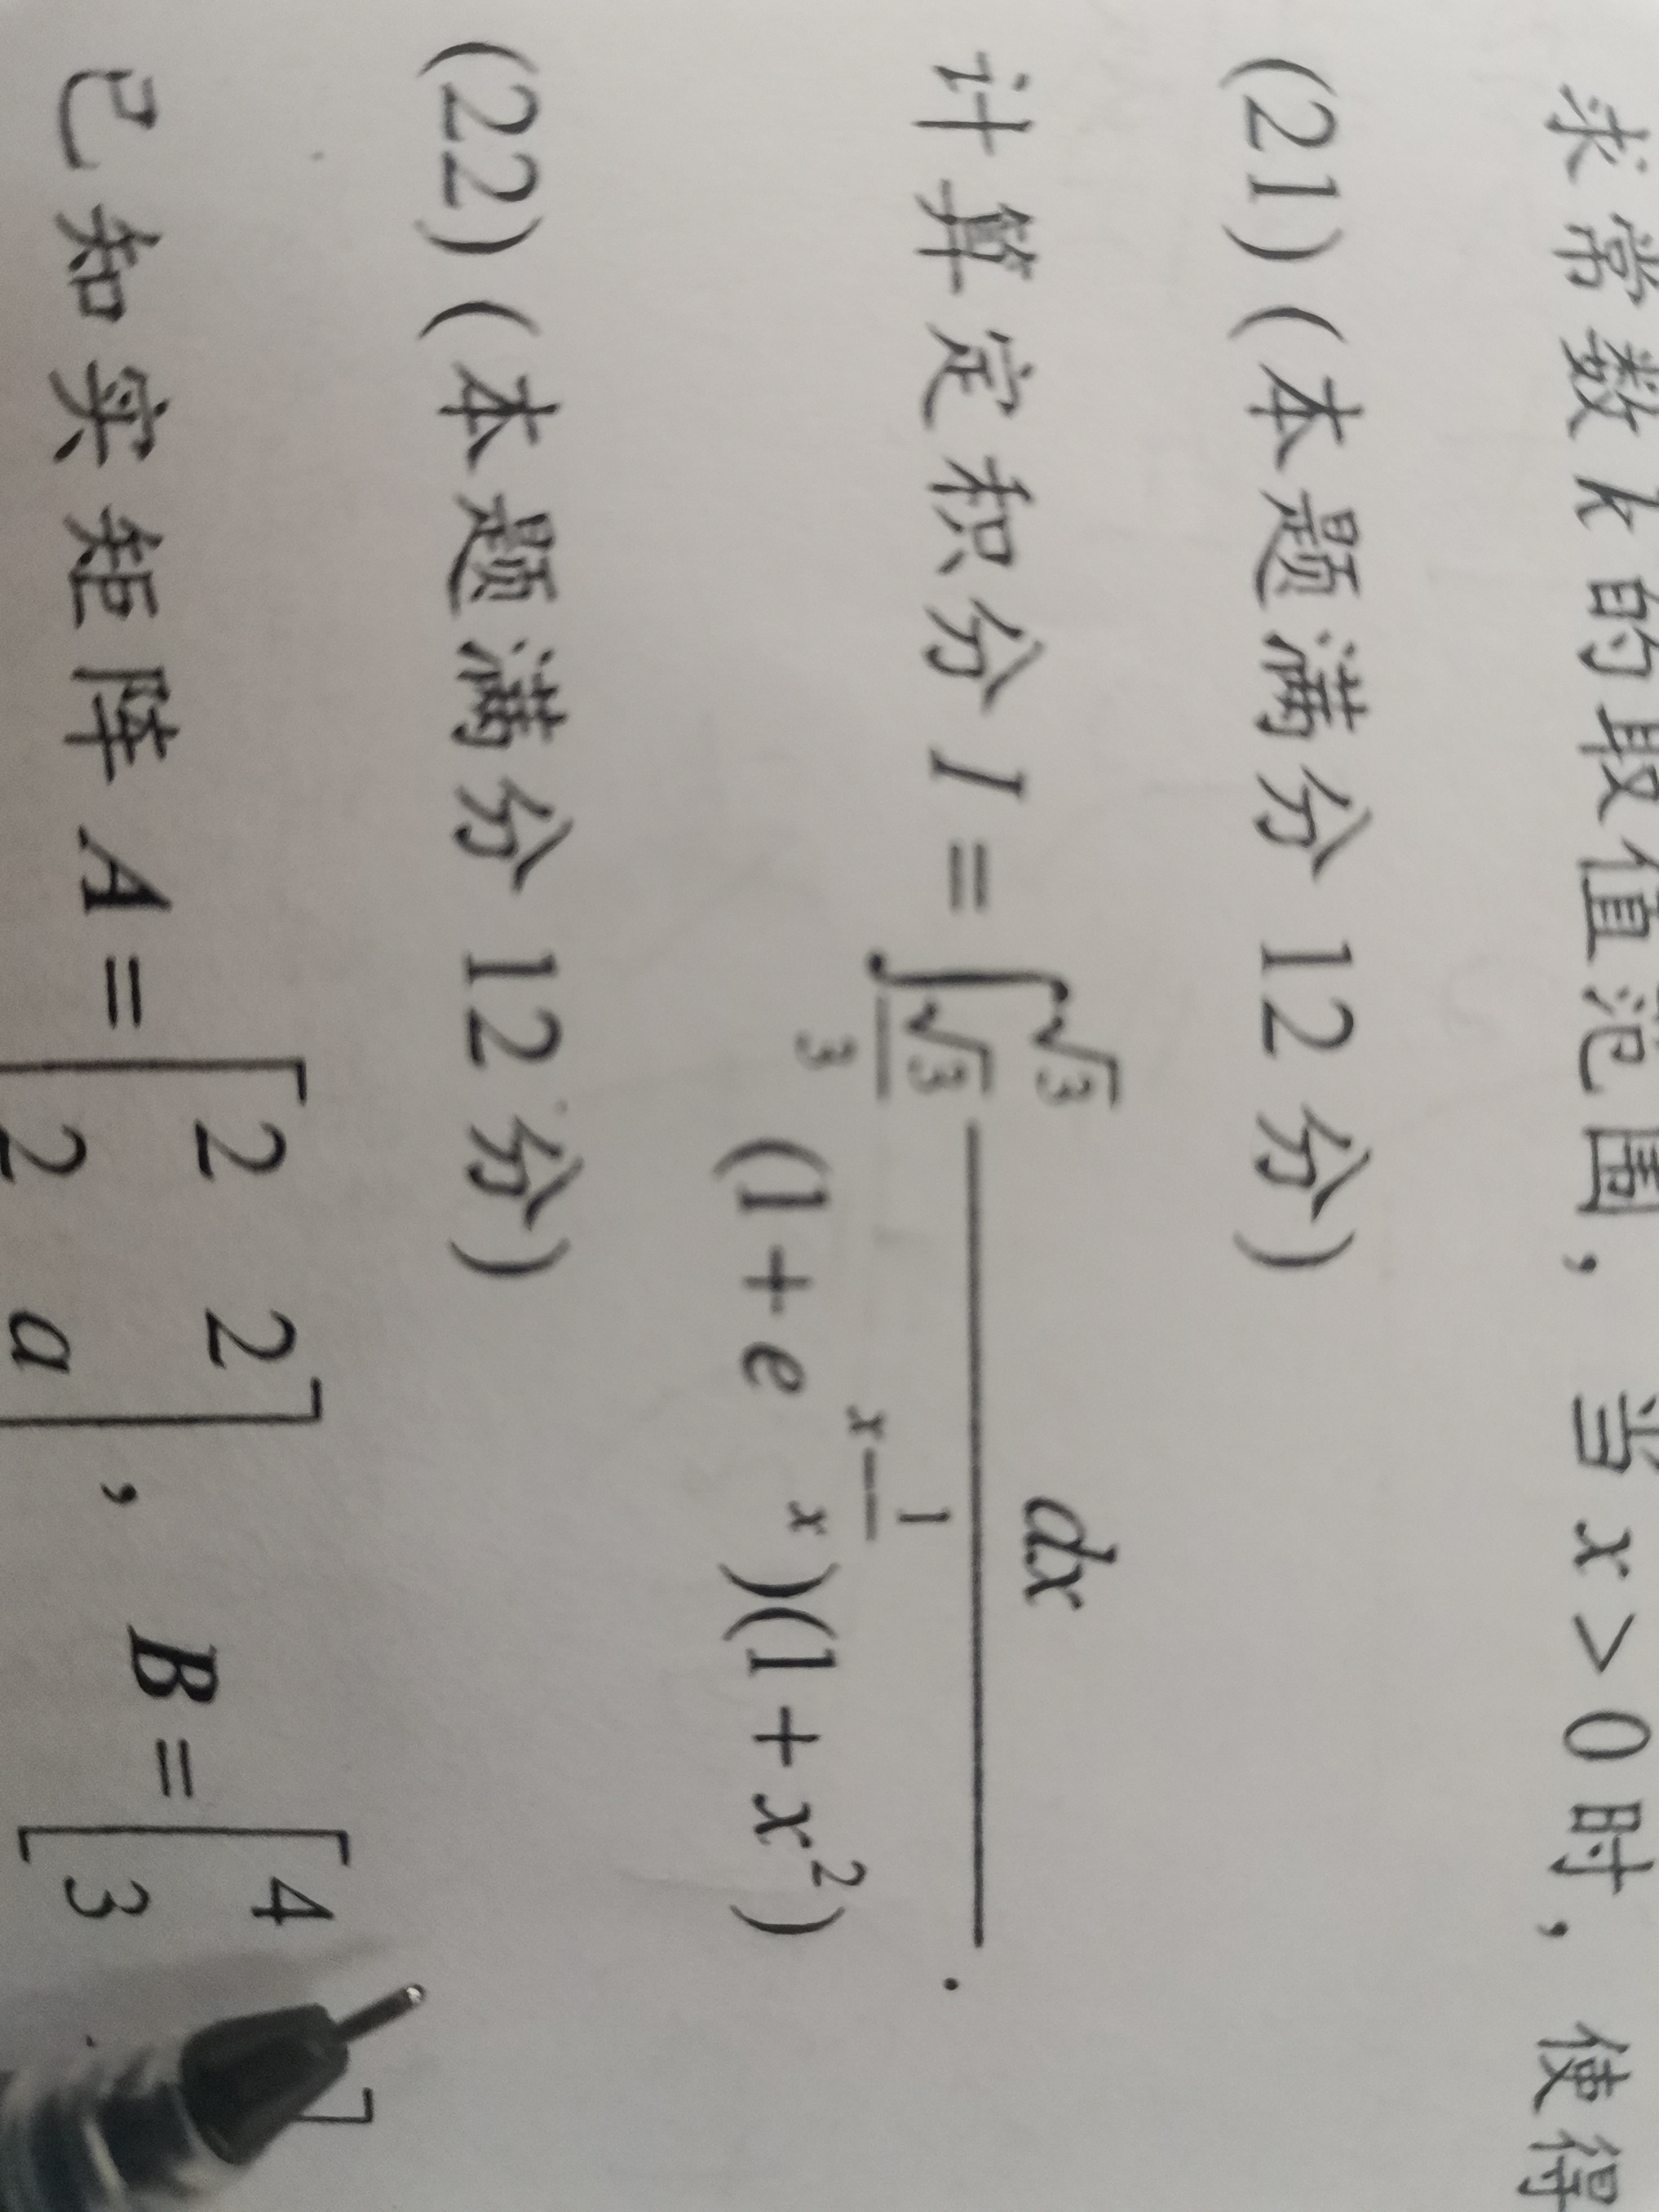 求常数 k 的取值范围，当 x > 0 时，使得
(21) (本题满分 12 分)
计算定积分 I = ∫_{√3/3}^{√3} dx / ((1 + e^{x - 1/x})(1 + x²)) .
(22) (本题满分 12 分)
已知实矩阵 A = [2 2; 2 a], B = [4
3